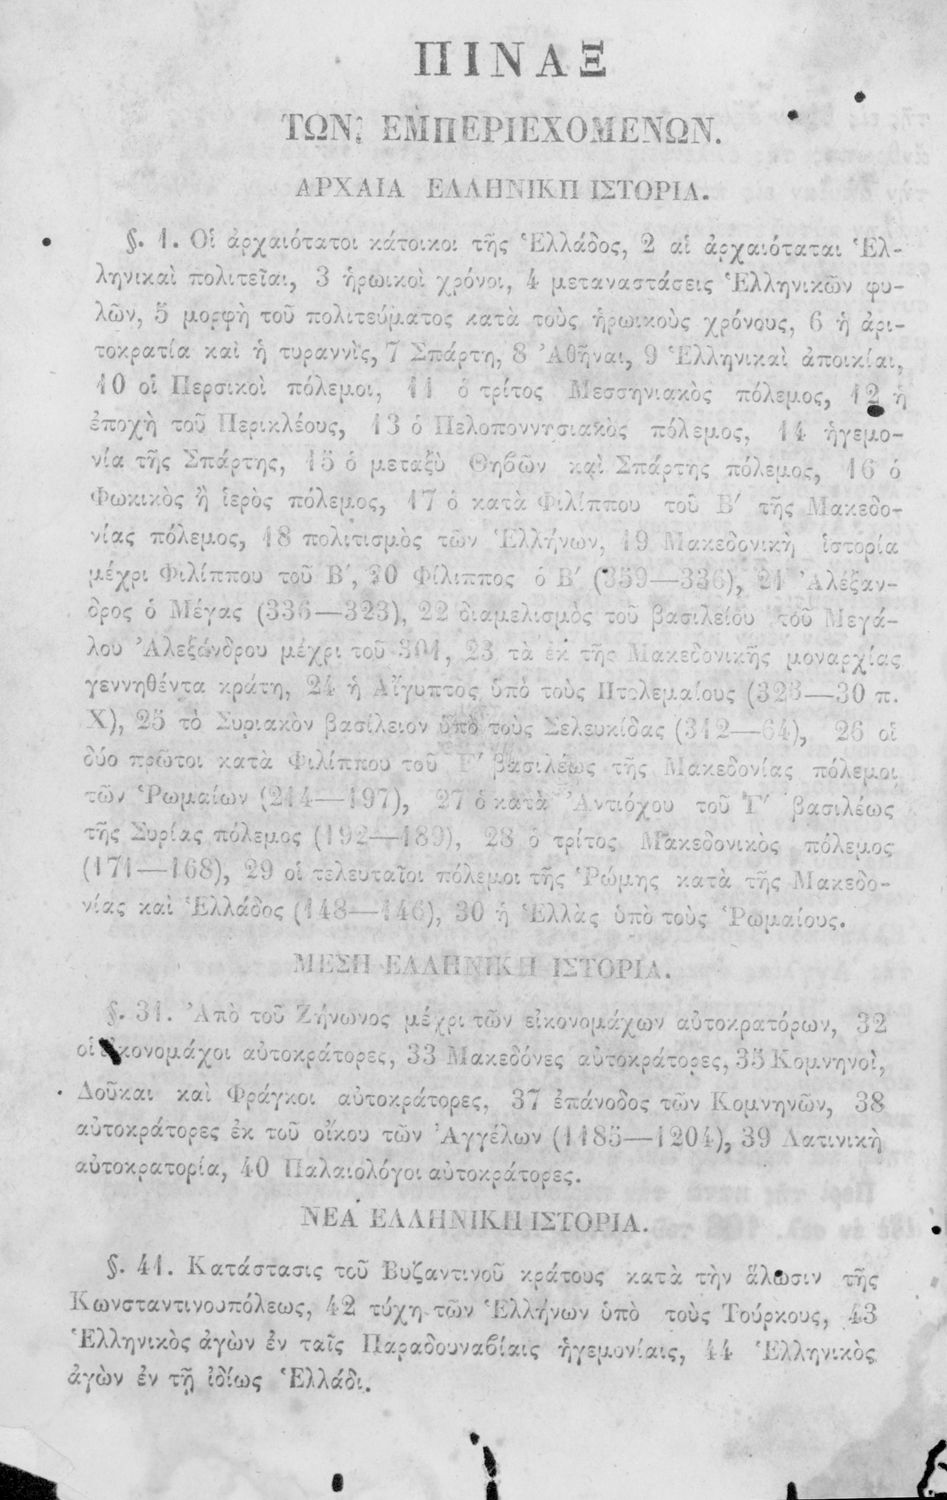 ΠΙΝΑΞ
ΤΩΝ ΕΜΠΕΡΙΕΧΟΜΕΝΩΝ.
ΑΡΧΑΙΑ ΕΛΛΗΝΙΚΗ ΙΣΤΟΡΙΑ.
§. 1. Οἱ ἀρχαιότατοι κάτοικοι τῆς Ἑλλάδος, 2 αἱ ἀρχαιόταται Ἑλ-
ληνικαὶ πολιτεῖαι, 3 ἡρωικοὶ χρόνοι, 4 μεταναστάσεις Ἑλληνικῶν φυ-
λῶν, 5 μορφὴ τοῦ πολιτεύματος κατὰ τοὺς ἡρωικοὺς χρόνους, 6 ἡ ἀρι-
τοκρατία καὶ ἡ τυραννὶς, 7 Σπάρτη, 8 Ἀθῆναι, 9 Ἑλληνικαὶ ἀποικίαι,
10 οἱ Περσικοὶ πόλεμοι, 11 ὁ τρίτος Μεσσηνιακὸς πόλεμος, 12 ἡ
ἐποχὴ τοῦ Περικλέους, 13 ὁ Πελοποννησιακὸς πόλεμος, 14 ἡγεμο-
νία τῆς Σπάρτης, 15 ὁ μεταξὺ Θηβῶν καὶ Σπάρτης πόλεμος, 16 ὁ
Φωκικὸς ἢ ἱερὸς πόλεμος, 17 ὁ κατὰ Φιλίππου τοῦ Β′ τῆς Μακεδο-
νίας πόλεμος, 18 πολιτισμὸς τῶν Ἑλλήνων, 19 Μακεδονικὴ ἱστορία
μέχρι Φιλίππου τοῦ Β′, 20 Φίλιππος ὁ Β′ (359—336), 21 Ἀλέξαν-
δρος ὁ Μέγας (336—323), 22 διαμελισμὸς τοῦ βασιλείου τοῦ Μεγά-
λου Ἀλεξάνδρου μέχρι τοῦ 301, 23 τὰ ἐκ τῆς Μακεδονικῆς μοναρχίας
γεννηθέντα κράτη, 24 ἡ Αἴγυπτος ὑπὸ τοὺς Πτολεμαίους (323—30 π.
Χ), 25 τὸ Συριακὸν βασίλειον ὑπὸ τοὺς Σελευκίδας (312—64), 26 οἱ
δύο πρῶτοι κατὰ Φιλίππου τοῦ Γ′ βασιλέως τῆς Μακεδονίας πόλεμοι
τῶν Ῥωμαίων (214—197), 27 ὁ κατὰ Ἀντιόχου τοῦ Γ′ βασιλέως
τῆς Συρίας πόλεμος (192—189), 28 ὁ τρίτος Μακεδονικὸς πόλεμος
(171—168), 29 οἱ τελευταῖοι πόλεμοι τῆς Ῥώμης κατὰ τῆς Μακεδο-
νίας καὶ Ἑλλάδος (148—146), 30 ἡ Ἑλλὰς ὑπὸ τοὺς Ῥωμαίους.
ΜΕΣΗ ΕΛΛΗΝΙΚΗ ΙΣΤΟΡΙΑ.
§. 31. Ἀπὸ τοῦ Ζήνωνος μέχρι τῶν εἰκονομάχων αὐτοκρατόρων, 32
οἱ εἰκονομάχοι αὐτοκράτορες, 33 Μακεδόνες αὐτοκράτορες, 35 Κομνηνοὶ,
Δοῦκαι καὶ Φράγκοι αὐτοκράτορες, 37 ἐπάνοδος τῶν Κομνηνῶν, 38
αὐτοκράτορες ἐκ τοῦ οἴκου τῶν Ἀγγέλων (1185—1204), 39 Λατινικὴ
αὐτοκρατορία, 40 Παλαιολόγοι αὐτοκράτορες.
ΝΕΑ ΕΛΛΗΝΙΚΗ ΙΣΤΟΡΙΑ.
§. 41. Κατάστασις τοῦ Βυζαντινοῦ κράτους κατὰ τὴν ἅλωσιν τῆς
Κωνσταντινουπόλεως, 42 τύχη τῶν Ἑλλήνων ὑπὸ τοὺς Τούρκους, 43
Ἑλληνικὸς ἀγὼν ἐν ταῖς Παραδουναβίαις ἡγεμονίαις, 44 Ἑλληνικὸς
ἀγὼν ἐν τῇ ἰδίως Ἑλλάδι.